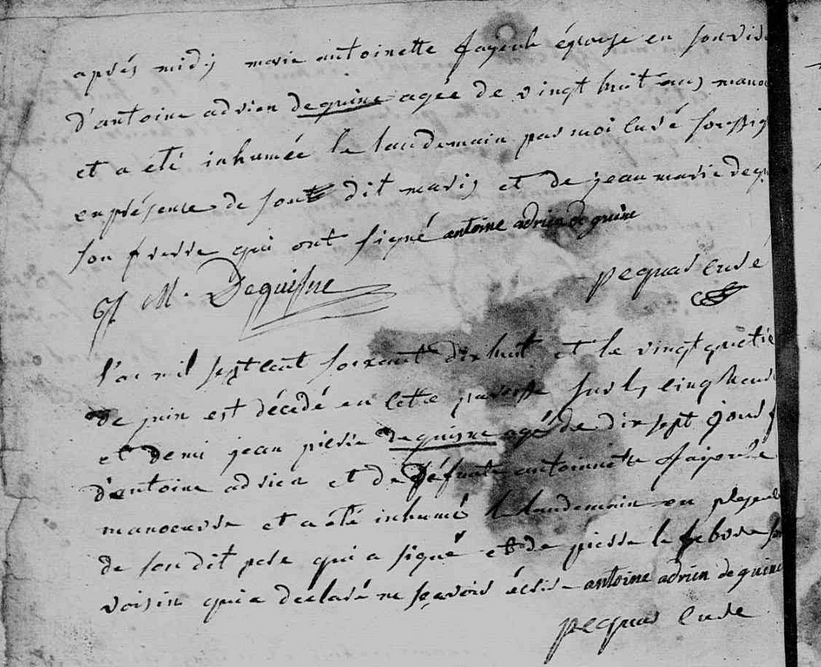 après midis marie antoinette fayeule épouse en son viv
d'antoine adrien dequine agée de vingt huit ans mano
et a été inhumée le laudemain par moi curé soussig
en présence de sont dit maris et de jean marie deq
son frerre qui ont signé antoine adrien de quine
J M. Dequisne pequas curé
l'an mil sept cent soixant dix huit et le vingt quatri
de juin est décédé en cette paroisse sur les cinq heur
et demi jean pierre dequisne agé de dix sept jours f
d'antoine adrien et de défunte antoinette
manoeuvre et a été inhumé le laudemain en
de son dit pere qui a signé et de pierre le febvre
voisin qui a declaré ne sçavoir écrire antoine adrien de quine
pequas curé